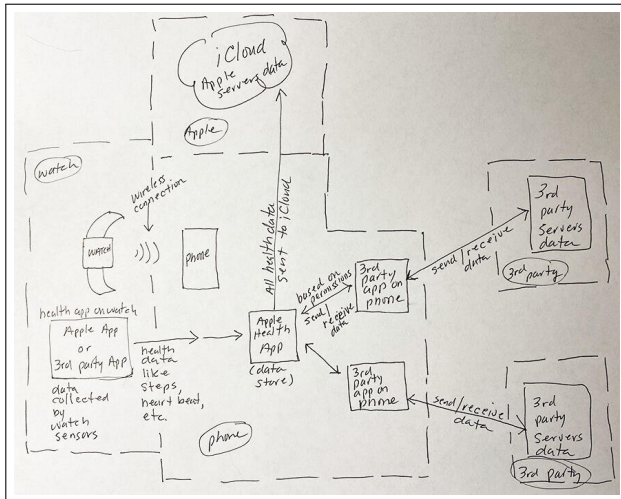 iCloud
Apple
servers data
Apple
watch
wireless
connection
WATCH
phone
All health data
sent to iCloud
health app on watch
Apple App
or
3rd party App
data
collected
by
watch
sensors
health
data
like
steps,
heart beat,
etc.
Apple
Health
App
(data
store)
based on
permissions
send/
receive
data
3rd
party
app on
phone
3rd
party
app on
phone
phone
send/receive
data
3rd
party
servers
data
3rd party
send/receive
data
3rd
party
servers
data
3rd party